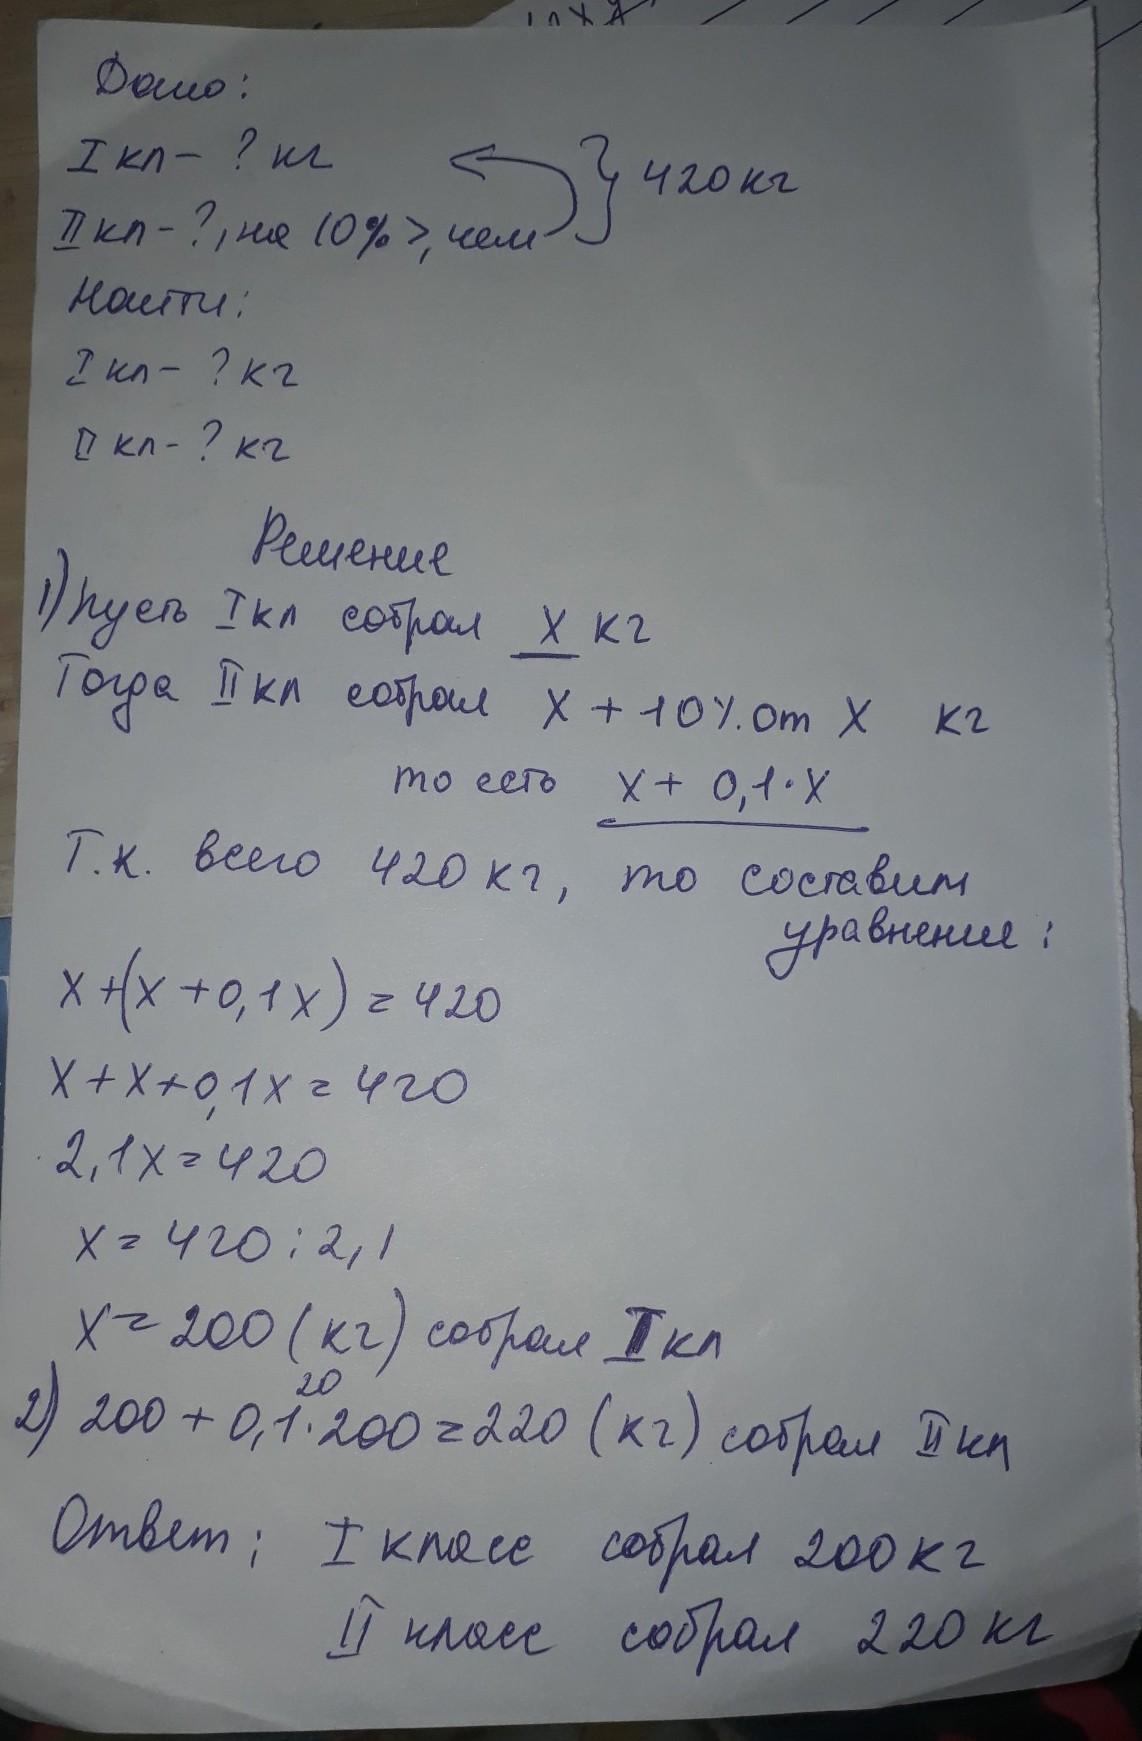 Дано:
I кл - ? кг
420 кг
II кл - ?, на 10% >, чем
Найти:
I кл - ? кг
II кл - ? кг
Решение
1) Пусть I кл собрал х кг
Тогда II кл собрал х + 10% от х кг
то есть х + 0,1·х
Т.к. всего 420 кг, то составим
уравнение:
х+(х+0,1х)=420
х+х+0,1х=420
2,1х=420
х=420:2,1
х=200 (кг) собрал I кл
20
2) 200 + 0,1·200=220 (кг) собрал II кл
Ответ: I класс собрал 200 кг
II класс собрал 220 кг